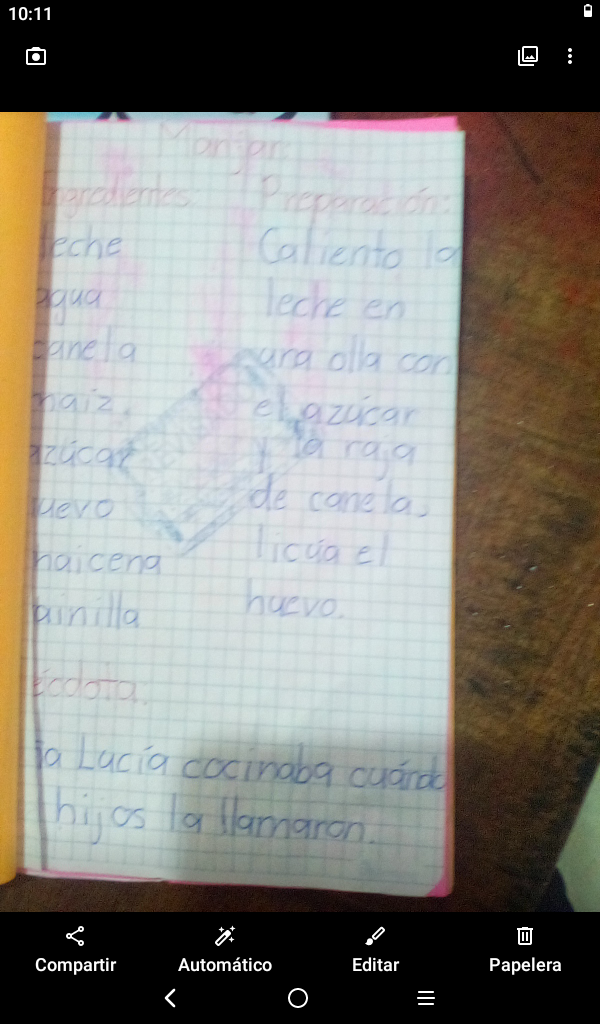 10:11
Manjar
Ingredientes:
leche
agua
canela
maiz,
azúcar
uevo
maicena
ainilla
Preparación:
Caliento la
leche en
una olla con
el azúcar
y la raja
de canela,
licúa el
huevo.
écdota.
ia Lucía cocinaba cuándo
hijos la llamaron.
Compartir
Automático
Editar
Papelera